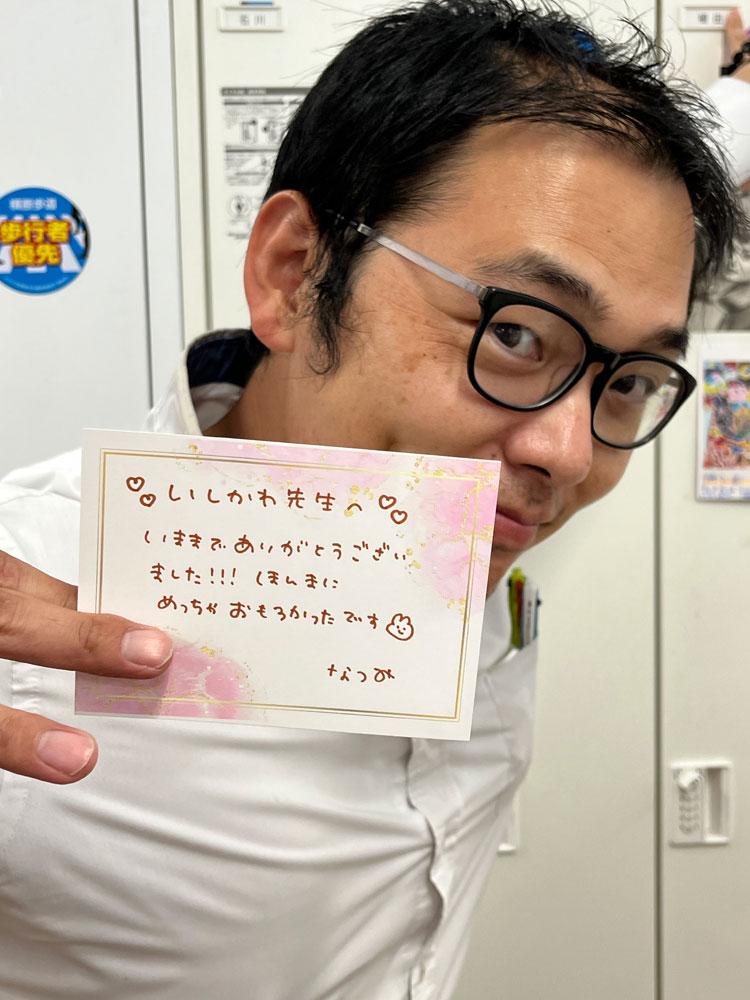 石川
横断歩道
歩行者
優先
いしかわ先生へ
いままでありがとうござい
ました!!! ほんまに
めっちゃおもろかったです
なつみ